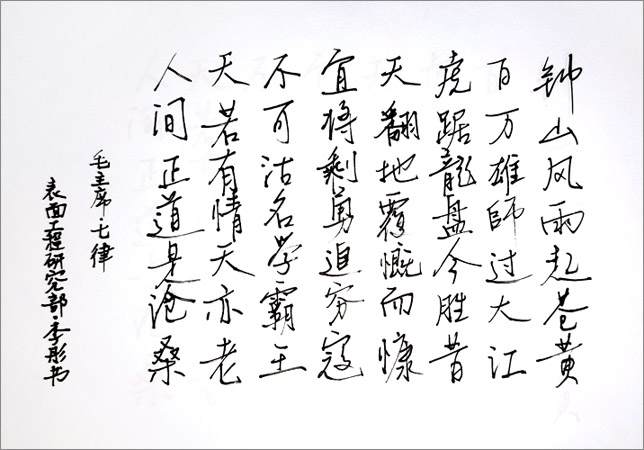 钟山风雨起苍黄
百万雄師过大江
虎踞龍盘今胜昔
天翻地覆慨而慷
宜将剩勇追穷寇
不可沽名学霸王
天若有情天亦老
人间正道是沧桑
毛主席·七律
表面工程研究部·李彤书